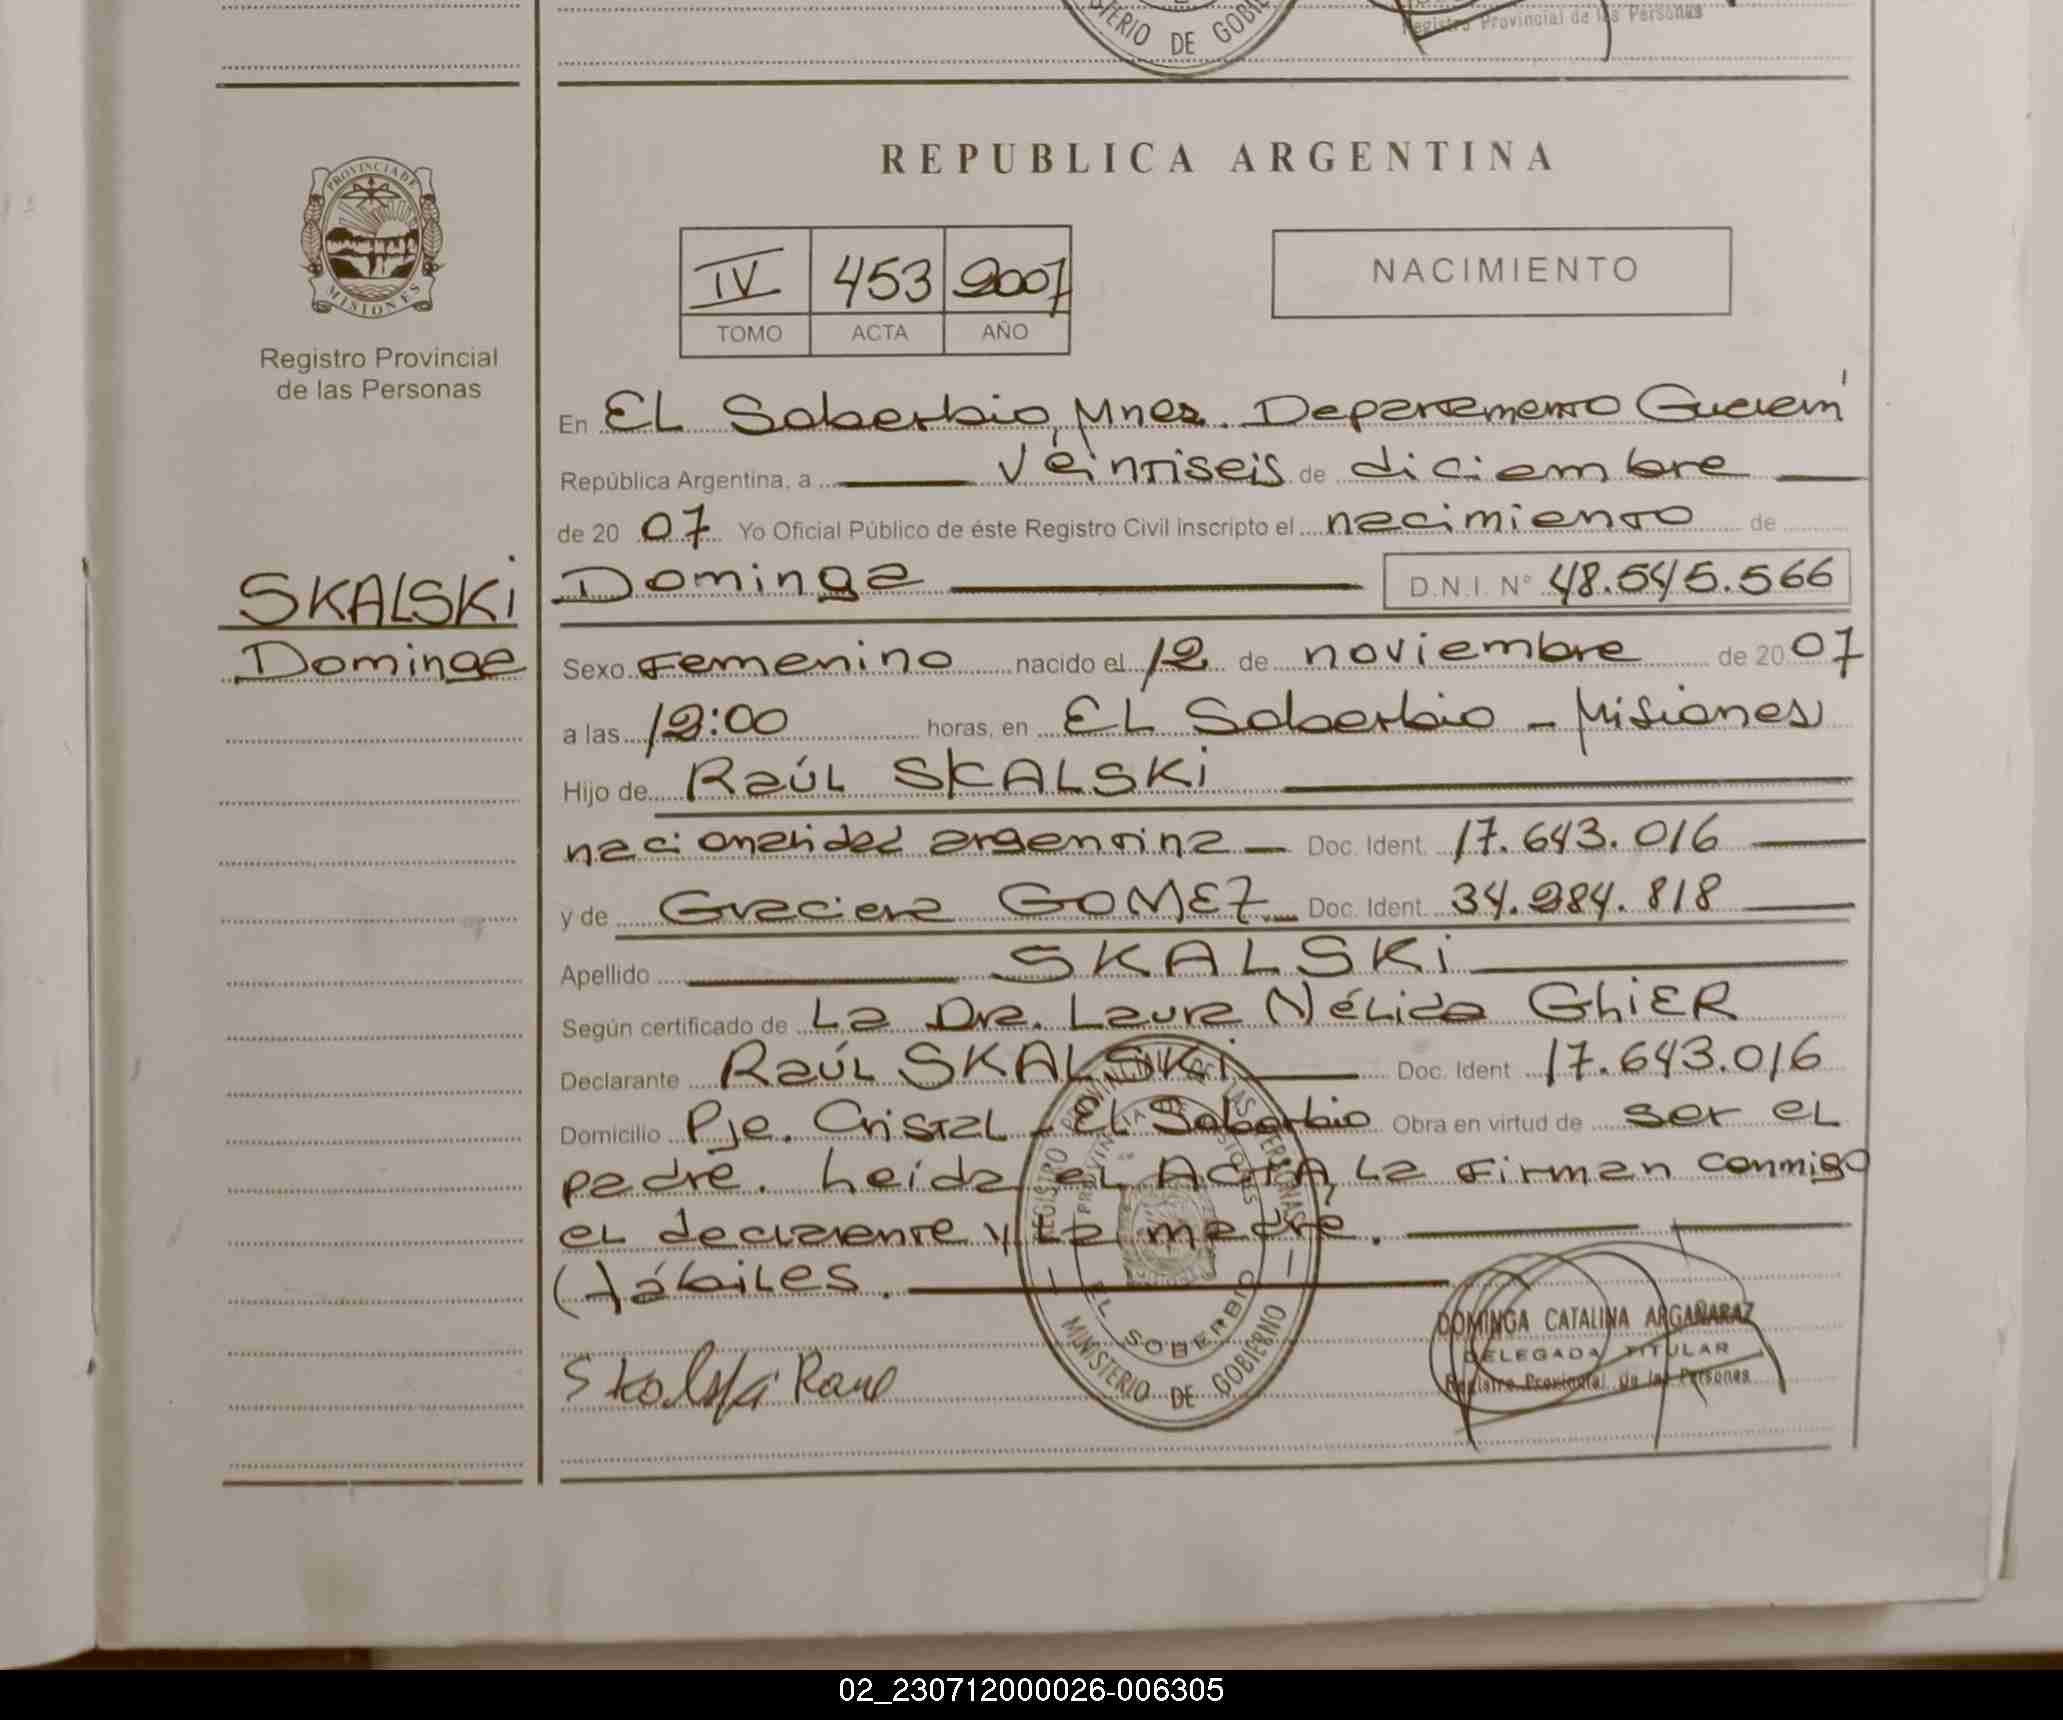 MINISTERIO DE GOBIERNO
Registro Provincial de las Personas
PROVINCIA DE
MISIONES
Registro Provincial
de las Personas
REPUBLICA ARGENTINA
IV 453 2007
TOMO ACTA AÑO
NACIMIENTO
En EL Soberbio, Mnes. Departamento Guaraní
República Argentina, a Veintiseis de diciembre
de 2007 Yo Oficial Público de éste Registro Civil inscripto el nacimiento de
SKALSKi
Dominga
Dominga D.N.I. N° 48.545.566
Sexo Femenino nacido el 12 de noviembre de 2007
a las 12:00 horas, en EL Soberbio - Misiones
Hijo de Raúl SKALSKi
nacionalidad argentina Doc. Ident. 17.643.016
y de Graciela GOMEZ Doc. Ident. 34.284.818
Apellido SKALSKi
Según certificado de La Dra. Laura Nélida GhiER
Declarante Raúl SKALSKi Doc. Ident 17.643.016
Domicilio Pje. Cristal - EL Soberbio Obra en virtud de ser el
padre. Leída el ACTA, la firman conmigo
el declarante y la madre.
Hábiles.
REGISTRO PROVINCIAL DE LAS PERSONAS
PROVINCIA DE MISIONES
EL SOBERBIO
MINISTERIO DE GOBIERNO
Skalski Raul
DOMINGA CATALINA ARGAÑARAZ
DELEGADA TITULAR
Registro Provincial de las Personas
02_230712000026-006305